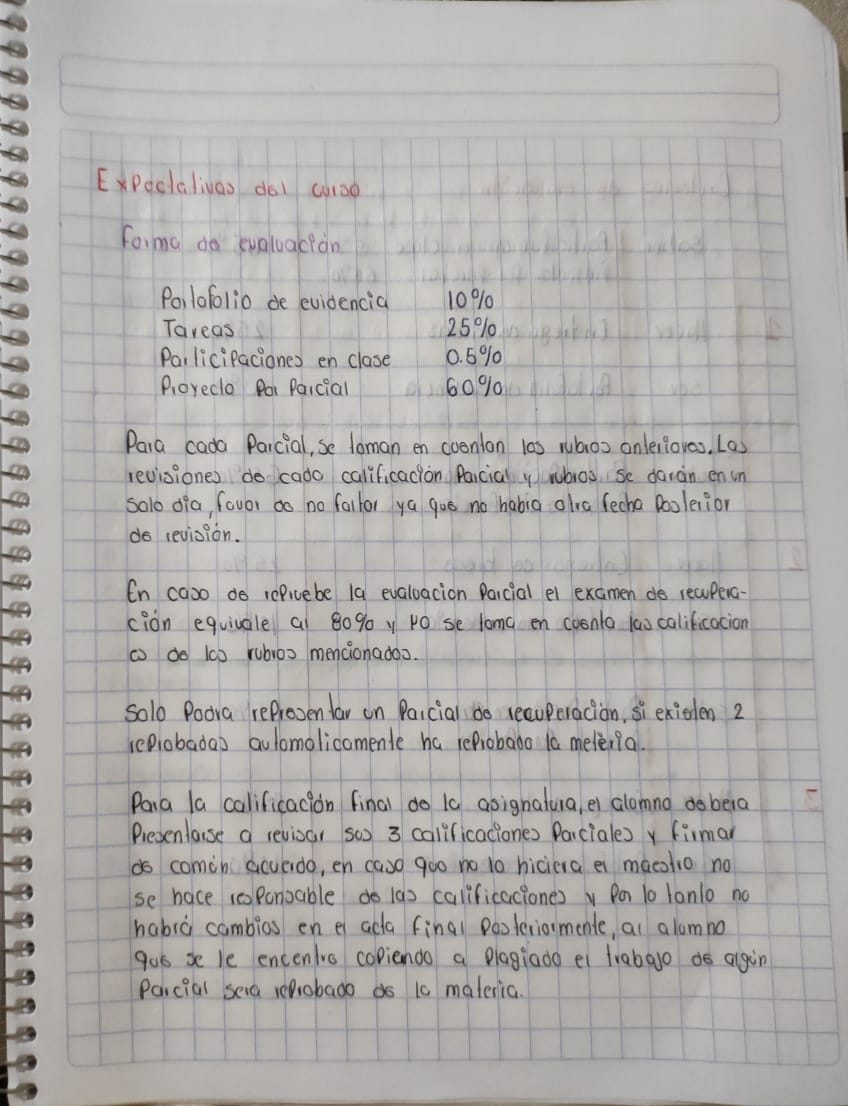 Expectativas del curso
Forma de evaluación
Portafolio de evidencia 10%
Tareas 25%
Participaciones en clase 0.5%
Proyecto Por Parcial 60%
Para cada Parcial, se toman en cuentan los rubros anteriores. Las
revisiones de cada calificación Parcial y rubros se darán en un
solo día, favor de no faltar ya que no habra otra fecha Posterior
de revisión.
En caso de repruebe la evaluacion Parcial el examen de recupera-
ción equivale al 80% y NO se toma en cuenta las calificacion
es de los rubros mencionados.
Solo Podra representar un Parcial de recuperación, si existen 2
reprobadas automaticamente ha reprobado la metèria.
Para la calificación final de la asignatura, el alumno debera
Presentarse a revisar sus 3 calificaciones Parciales y firmar
de común acuerdo, en caso que no lo hiciera el maestro no
se hace responsable de las calificaciones y Por lo tanto no
habrá cambios en el acta final Posteriormente, al alumno
que se le encentre copiendo a Plagiado el trabajo de algún
Parcial sera reprobado de la materia.